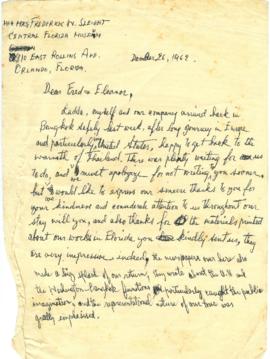 Mr & Mrs Frederick W. Sleight
Central Florida Museum
810 East Rollins Ave.
Orlando, Florida.
December 26, 1962
Dear Fred & Eleanor,
Ladda, myself and our company arrived back in
Bangkok safely last week, after long journey in Europe
and particularly United States, happy to get back to the
warmth of Thailand. There was plenty waiting for us
to do, and I must apology for not writing you sooner,
but would like to express our sincere thanks to you for
your kindness and considerate attention to us throughout our
stay with you, and also thanks for the materials printed
about our works in Florida you kindly sent us, they
are very impressive indeed, the newspapers over here also
make a big splash of our return, they wrote about the U.N. and
the Washington-Bangkok functions particularly caught the public
imagination, and the representational nature of our tour was
greatly emphasised.